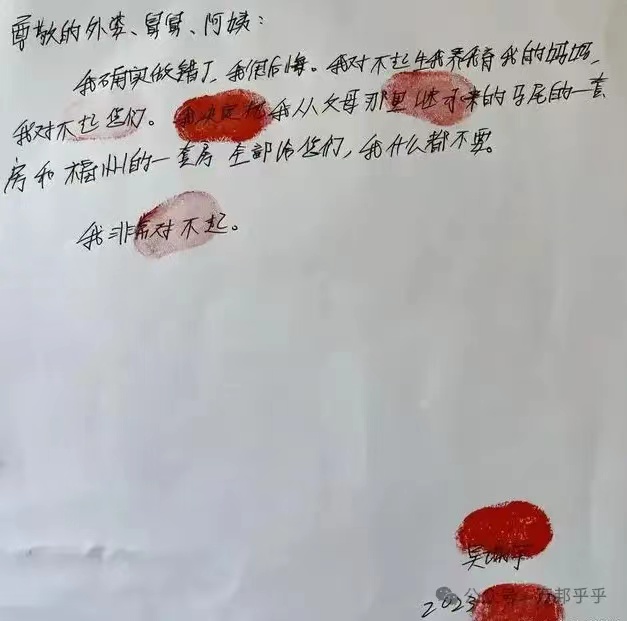 尊敬的外婆、舅舅、阿姨：
我确实做错了，我很后悔。我对不起生我养我育我的妈妈，
我对不起您们。我决定把我从父母那里继承来的马尾的一套
房和福州的一套房全部给您们，我什么都不要。
我非常对不起。
吴谢宇
公众号·万邦乎乎
2023